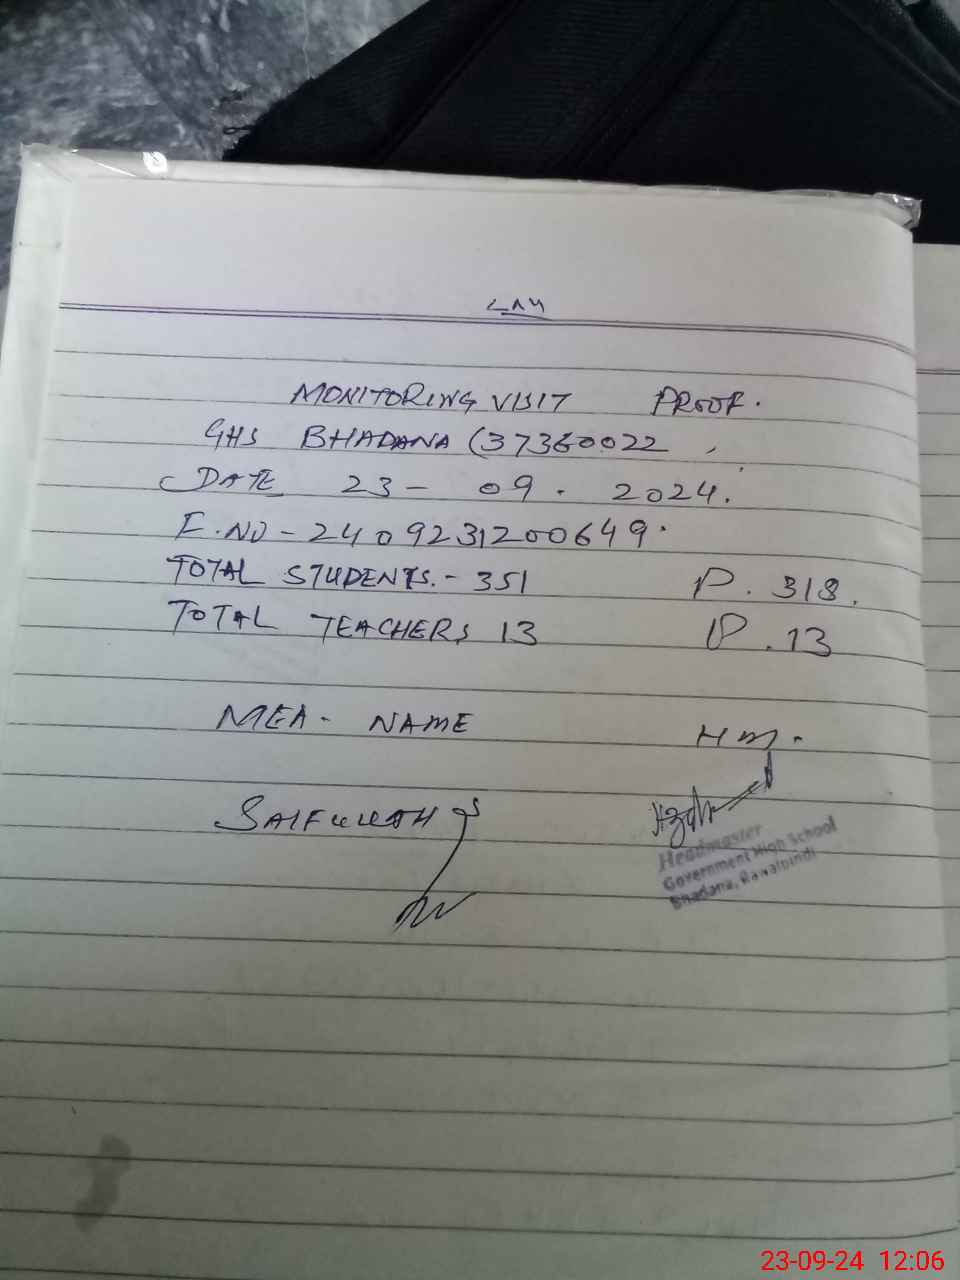 MONITORING VISIT PROOF.
GHS BHADANA (37360022
DATE 23 - 09 . 2024.
F.NO - 2409231200649.
TOTAL STUDENTS. - 351 P. 318.
TOTAL TEACHERS 13 P. 13
MEA - NAME
HM.
SAIFULLAH
Headmaster
Government High School
Bhadana, Rawalpindi
23-09-24 12:06